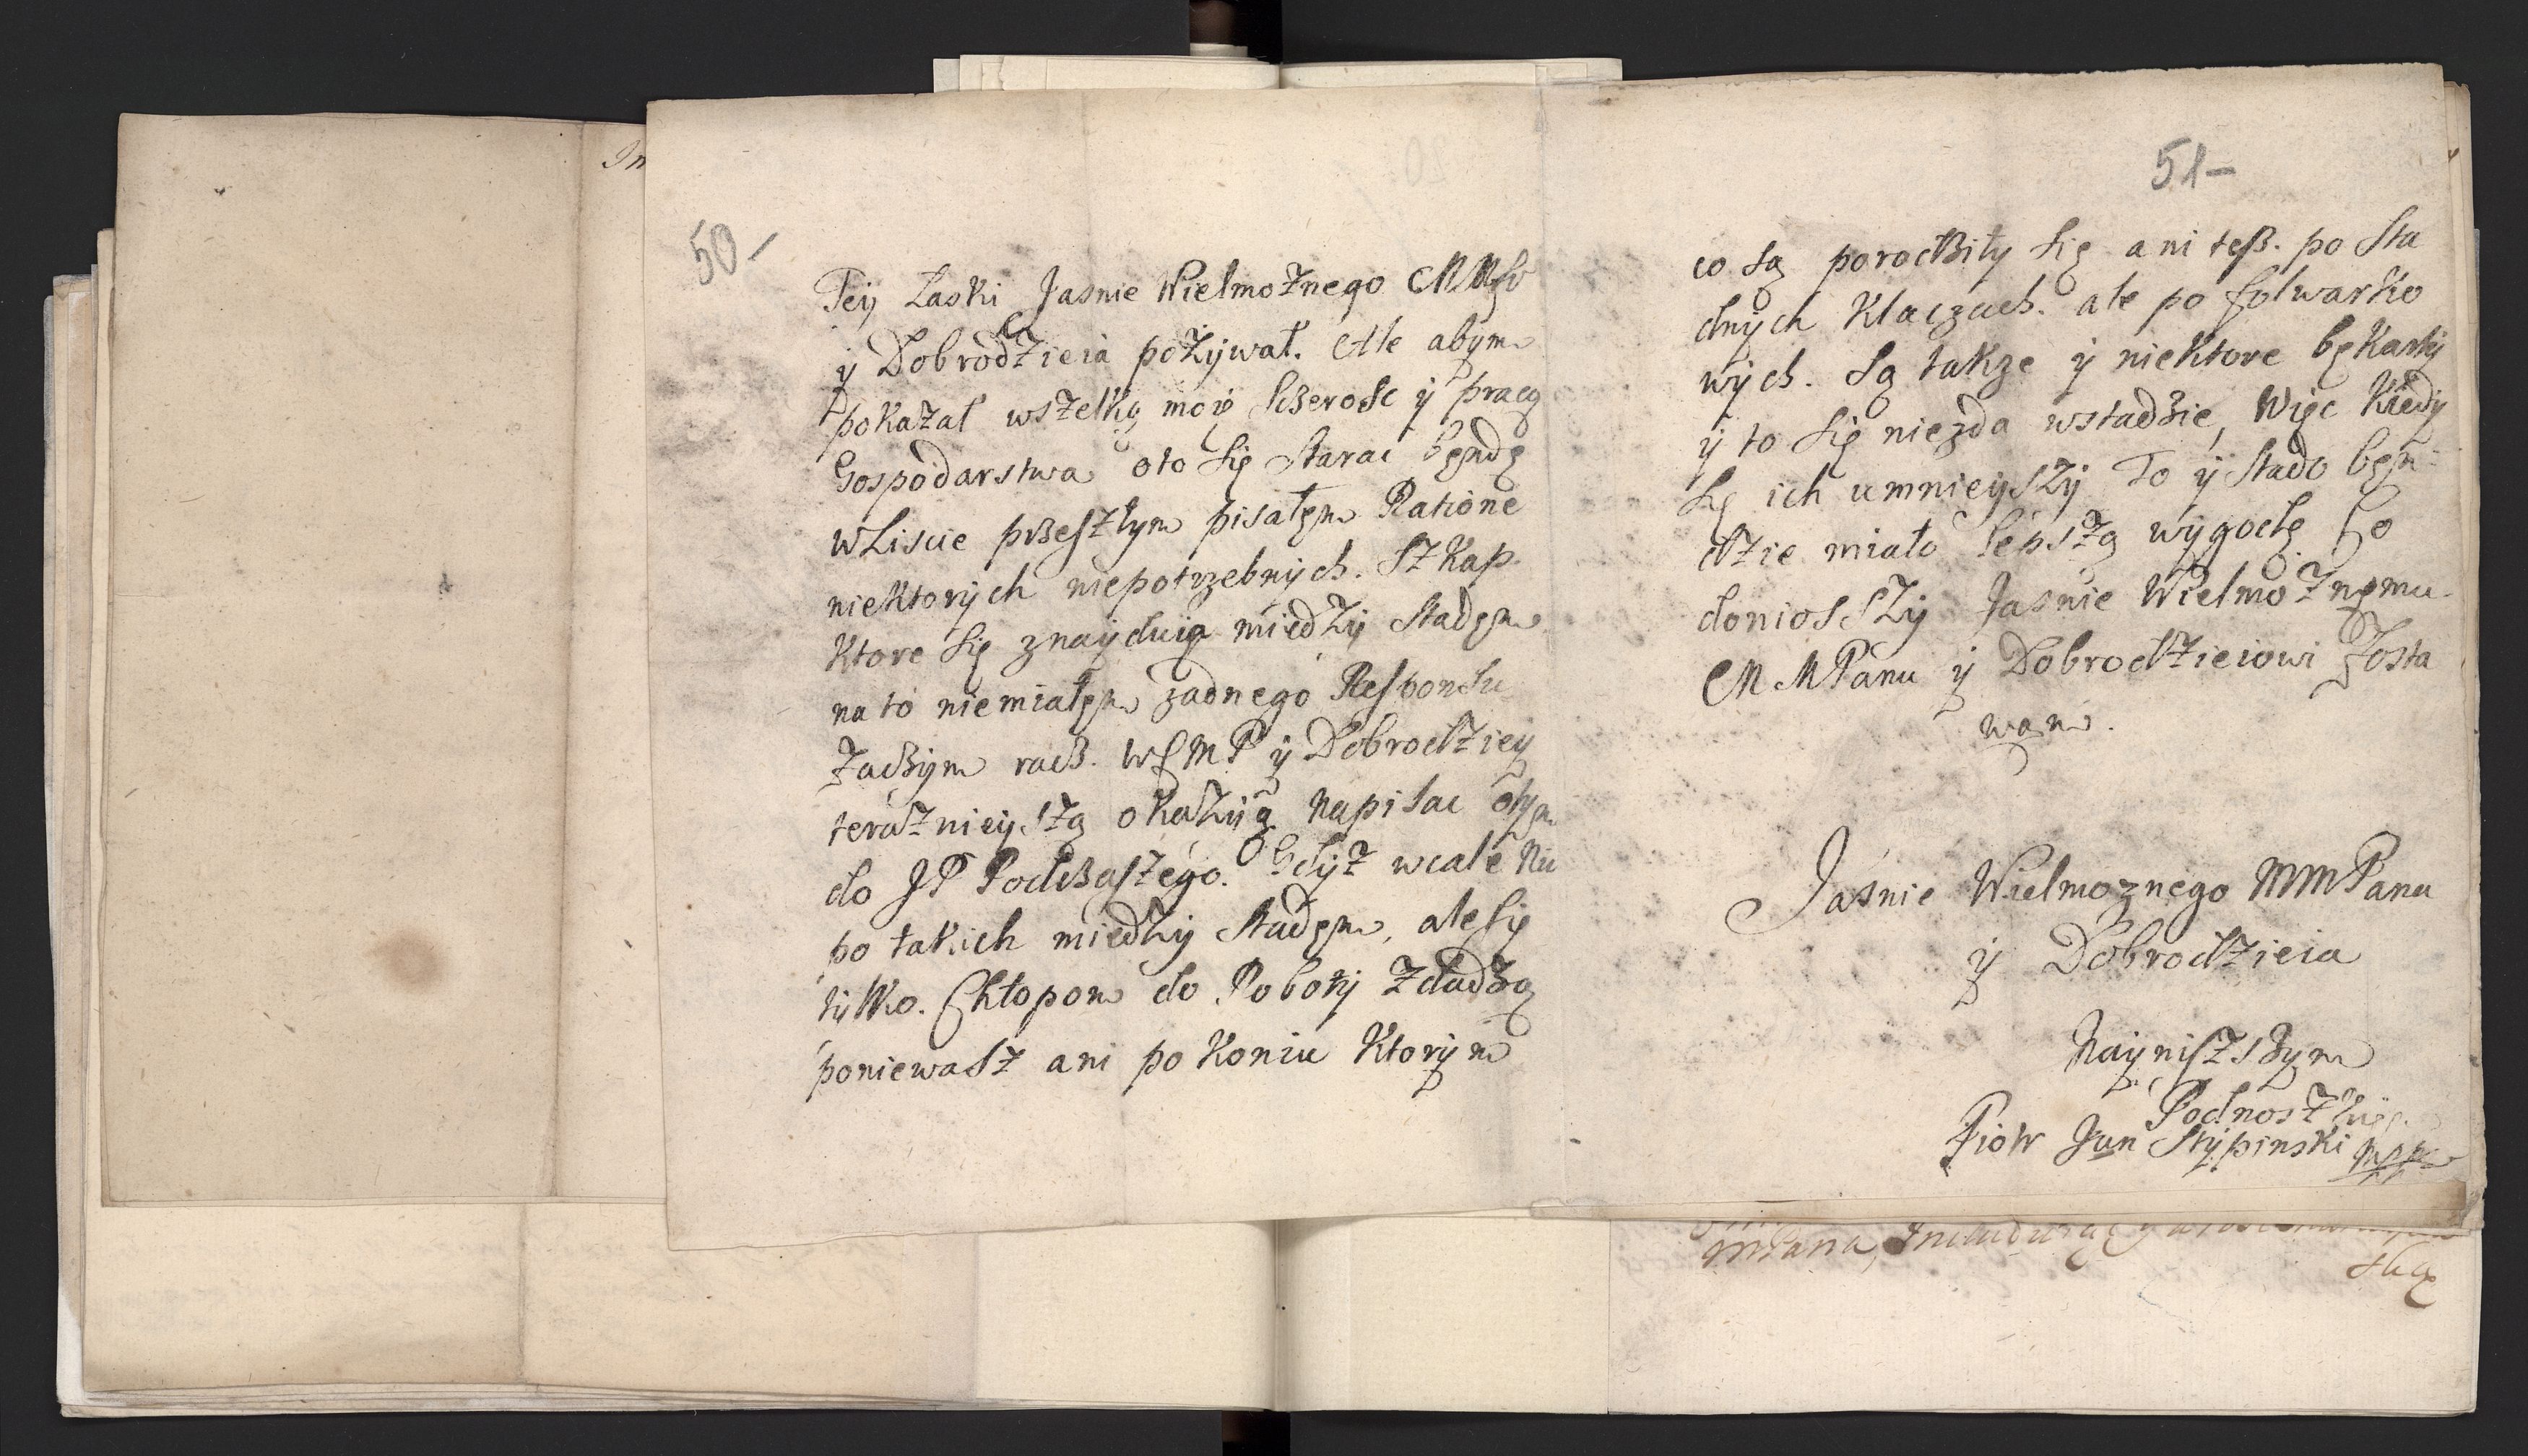 50-
Teÿ Laski Jasnie Wielmożnego
ÿ Dobrodzieia pożÿwał. Ale abÿm
pokazał wszelką moię Sczerosc ÿ pracą
Gospodarstwa oto Się Starac bęndę
wLiscie przeszłym pisałęm Ratione
niektorÿch niepotrzebnÿch. Szkap.
Ktore Się znaÿduią międzÿ Stadęm
na to niemiałęm zadnego Responsu
Zaczÿm racz. WMP ÿ Dobrodzieÿ
teraznieÿszą okazÿią napisac otÿm
do JP Podczaszégo. Gdÿż wcale nic
po takich międzÿ Stadęm, aleSię
tÿlko. Chłopom do Robotÿ Zdadzą
poniewasz ani po Koniu Ktorÿm
51-
co Są porodziłÿ Się ani tesz. po Sta
dnÿch Klaczach. ale po folwarko
wÿch. Są takze ÿ niektore bękartÿ
ÿ to Się niezda wstadzie, Więc Kiedÿ
Sę ich umnieÿszÿ To ÿ Stado bęn
dzie miało lepszą wÿgodę Co
doniosSzÿ Jasnie Wielmożnęmu
MMPanu ÿ Dobrodzieiowi Zosta
wam.
Jasnie Wielmoznego MMPana
ÿ Dobrodzieia
Naÿniszszÿm
Podnoszkięm
Piotr Jan Stÿpinski mpp
Sługą
Im